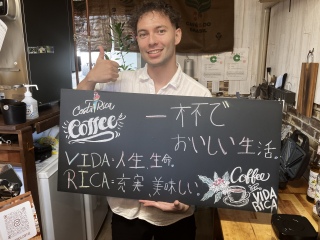 Costa Rica
Coffee
一杯で
おいしい生活。
VIDA・人生、生命。
RICA=充実 美味しい
Coffee
VIDA
RICA